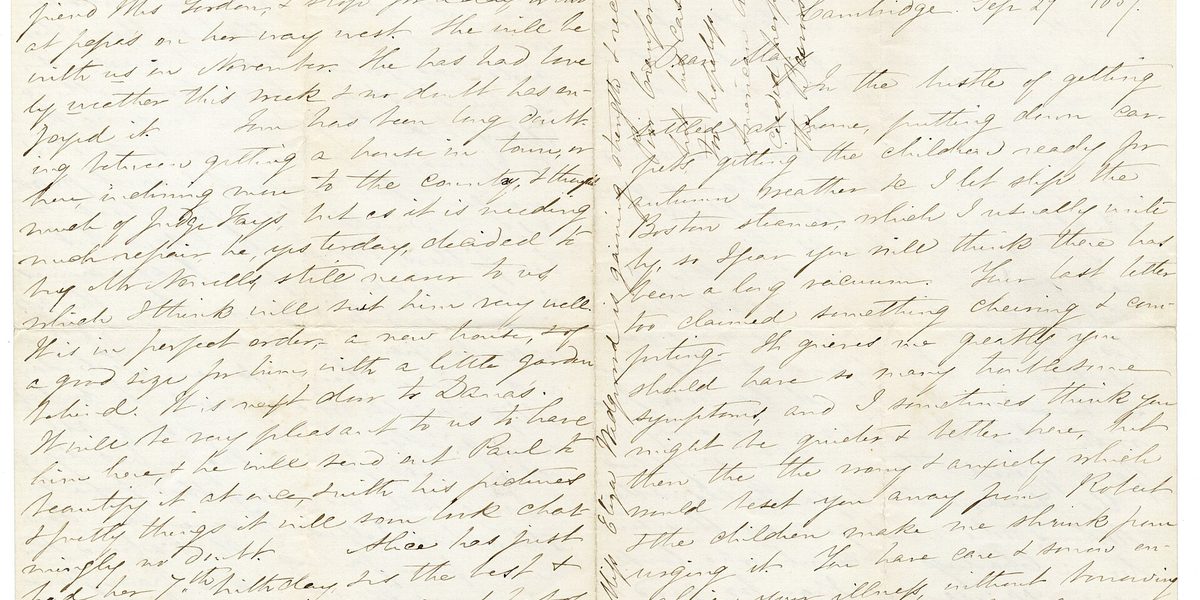 Cambridge. Sep 29 185
Dear Mary
In the bustle of getting
settled at home, putting down car-
pets, getting the children ready for
autumn weather &c I let slip the
Boston steamer, which I usually write
by, so I fear you will think there has
been a long vacuum. Your last letter
too claimed something cheering & com-
forting. It grieves me greatly you
should have so many troublesome
symptoms, and I sometimes think you
might be quieter & better here, but
then the the worry & anxiety which
would beset you away from Robert
& the children make me shrink from
urging it. You have care & sorrow en-
your illness, without borrowing
friend Mrs Gordon, & stop for a day or two
at papa's on her way west. She will be
with us in November. He has had love
ly weather this week & no doubt has en-
joyed it Tom has been long doubt-
ing between getting a house in town, or
here, inclining more to the country, & thought
much of Judge Fay's, but as it is needing
much repair, he, yesterday, decided to
buy Mr Norvells still nearer to us,
which I think will suit him very well.
It is in perfect order, a new house, & of
a good size for him, with a little garden
behind. It is next door to Danas.
It will be very pleasant to us to have
him here, & he will send out Paul to
beautify it at once, & with his pictures
& pretty things it will soon look char
mingly no doubt. Alice has just
had her 7th birthday, & is the best &
Miss Eliza Wedgwood is gaining strength